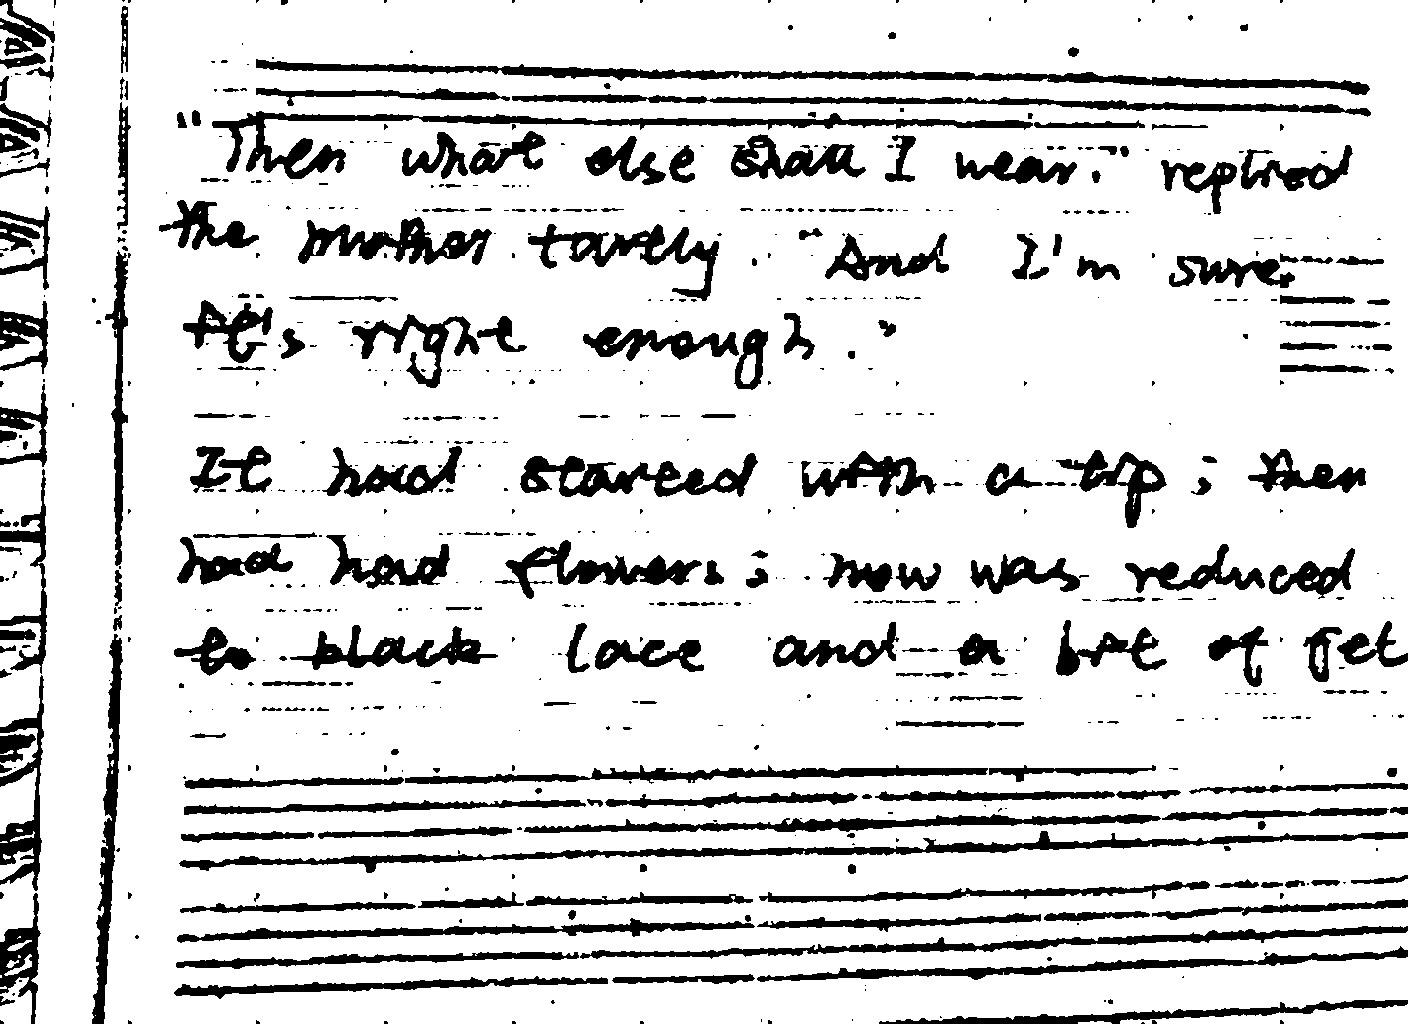 "Then what else shall I wear." replied
the mother tartly. "And I'm sure
it's right enough."
It had started with a tip; then
had had flowers; now was reduced
to black lace and a bit of jet